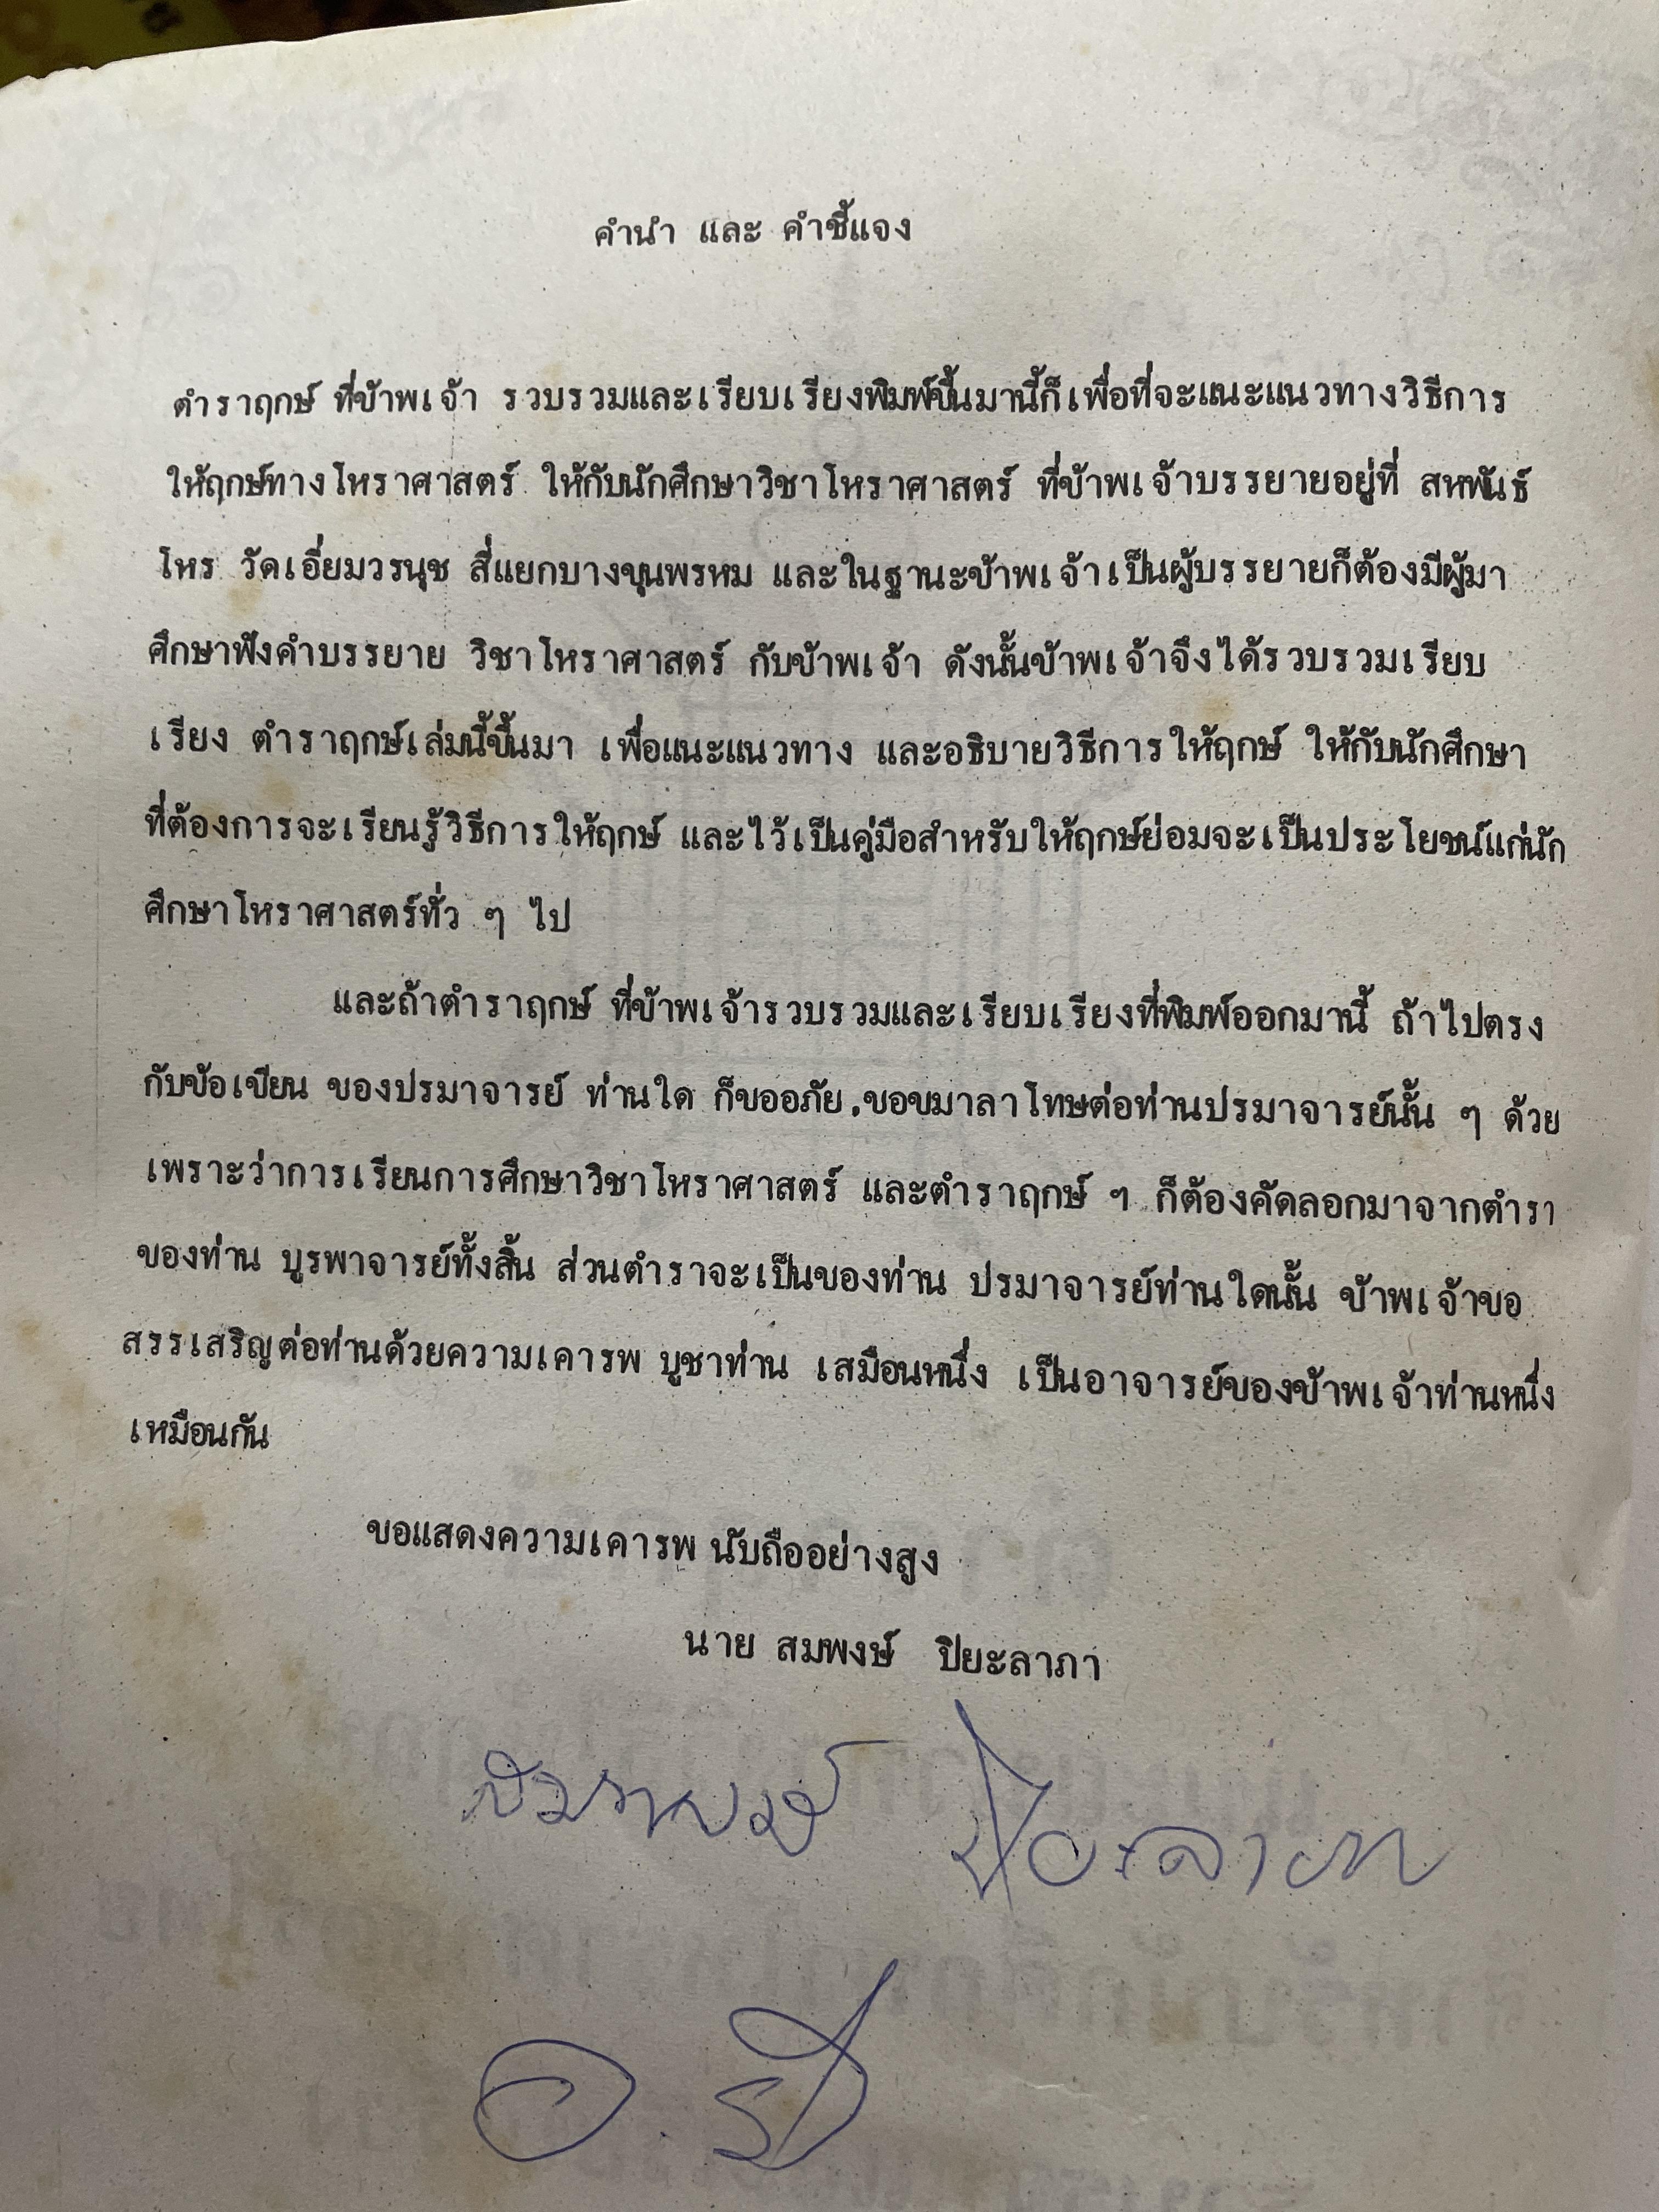 คำนำ และ คำชี้แจง
ตำราฤกษ์ ที่ข้าพเจ้า รวบรวมและเรียบเรียงพิมพ์ขึ้นมานี้ก็เพื่อที่จะแนะแนวทางวิธีการ
ให้ฤกษ์ทางโหราศาสตร์ ให้กับนักศึกษาวิชาโหราศาสตร์ ที่ข้าพเจ้าบรรยายอยู่ที่ สหพันธ์
โหร วัดเอี่ยมวรนุช สี่แยกบางขุนพรหม และในฐานะข้าพเจ้าเป็นผู้บรรยายก็ต้องมีผู้มา
ศึกษาฟังคำบรรยาย วิชาโหราศาสตร์ กับข้าพเจ้า ดังนั้นข้าพเจ้าจึงได้รวบรวมเรียบ
เรียง ตำราฤกษ์เล่มนี้ขึ้นมา เพื่อแนะแนวทาง และอธิบายวิธีการให้ฤกษ์ ให้กับนักศึกษา
ที่ต้องการจะเรียนรู้วิธีการให้ฤกษ์ และไว้เป็นคู่มือสำหรับให้ฤกษ์ย่อมจะเป็นประโยชน์แก่นัก
ศึกษาโหราศาสตร์ทั่ว ๆ ไป
และถ้าตำราฤกษ์ ที่ข้าพเจ้ารวบรวมและเรียบเรียงที่พิมพ์ออกมานี้ ถ้าไปตรง
กับข้อเขียน ของปรมาจารย์ ท่านใด ก็ขออภัย.ขอขมาลาโทษต่อท่านปรมาจารย์นั้น ๆ ด้วย
เพราะว่าการเรียนการศึกษาวิชาโหราศาสตร์ และตำราฤกษ์ ฯ ก็ต้องคัดลอกมาจากตำรา
ของท่าน บูรพาจารย์ทั้งสิ้น ส่วนตำราจะเป็นของท่าน ปรมาจารย์ท่านใดนั้น ข้าพเจ้าขอ
สรรเสริญต่อท่านด้วยความเคารพ บูชาท่าน เสมือนหนึ่ง เป็นอาจารย์ของข้าพเจ้าท่านหนึ่ง
เหมือนกัน
ขอแสดงความเคารพ นับถืออย่างสูง
นาย สมพงษ์ ปิยะลาภา
สมพงษ์ ปิยะลาภา